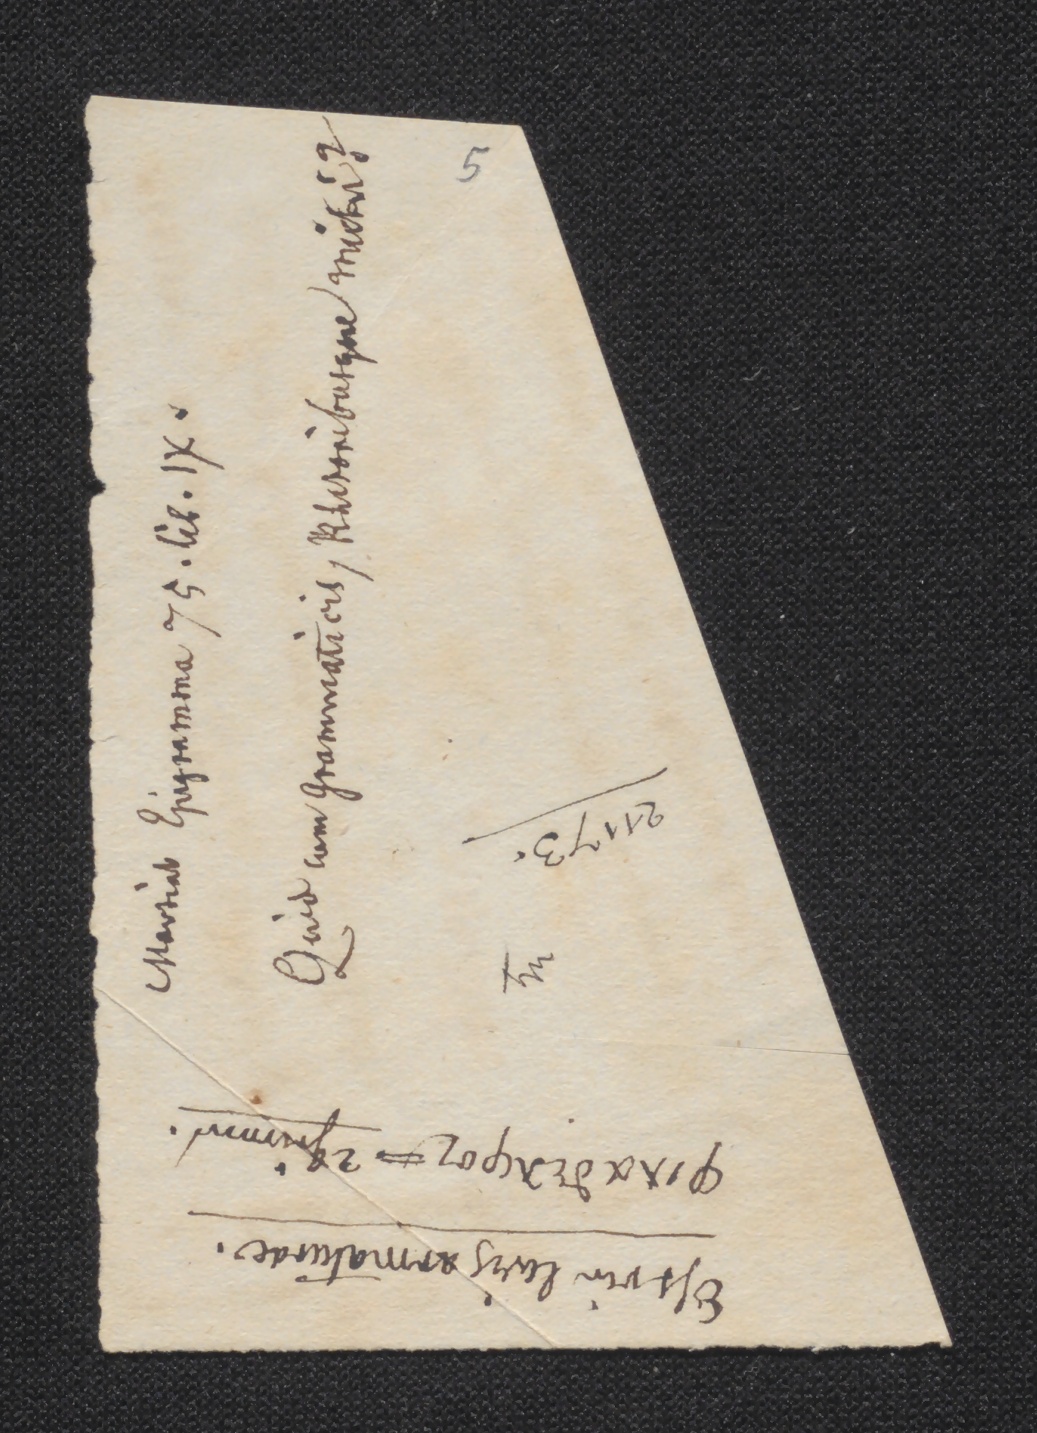 5
Martial Epigramma 75. lib. IX.
Quid cum grammaticis, Rhetoribusque michi?
21173.
φιλαδελφος =
Est vir levis armaturae.